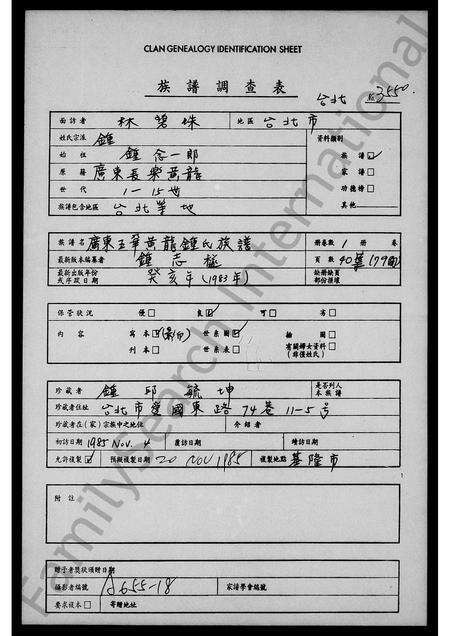 CLAN GENEALOGY IDENTIFICATION SHEET
族譜調查表
台北 № 3550
面訪者 林碧珠 地區 台北市
姓氏宗派 鍾 資料類別
始祖 鍾念一郎 族譜☑
原籍 廣東長樂黃龍 家譜□
世代 1-15世 功德榜□
族譜包含地區 台北等地 其他
族譜名 廣東五華黃龍鍾氏族譜 冊卷數 1 冊 卷
最新版本編纂者 鍾志 頁數 40葉(79面)
最新出版年份或序跋日期 癸亥年(1983年) 缺冊缺頁部份損壞
保管狀況 優□ 良☑ 可□ 劣□
內容 寫本☑(影印) 世系圖☑ 繪圖□
刊本□ 世系表□ 有關婦女資料□(非僅姓氏)
珍藏者 鍾邱毓坤 是否列入本族譜
珍藏者住址 台北市愛國東路74巷11-5号
珍藏者在(家)宗族中之地位 介紹者
初訪日期 1985 Nov. 4 覆訪日期 續訪日期
允許複製☑ 預擬複製日期 20 NOV 1985 複製地點 基隆市
附註
贈予者獎狀頒贈日期
攝影者編號 A655-18 家譜學會編號
要求複本□ 寄贈地址
FamilySearch International